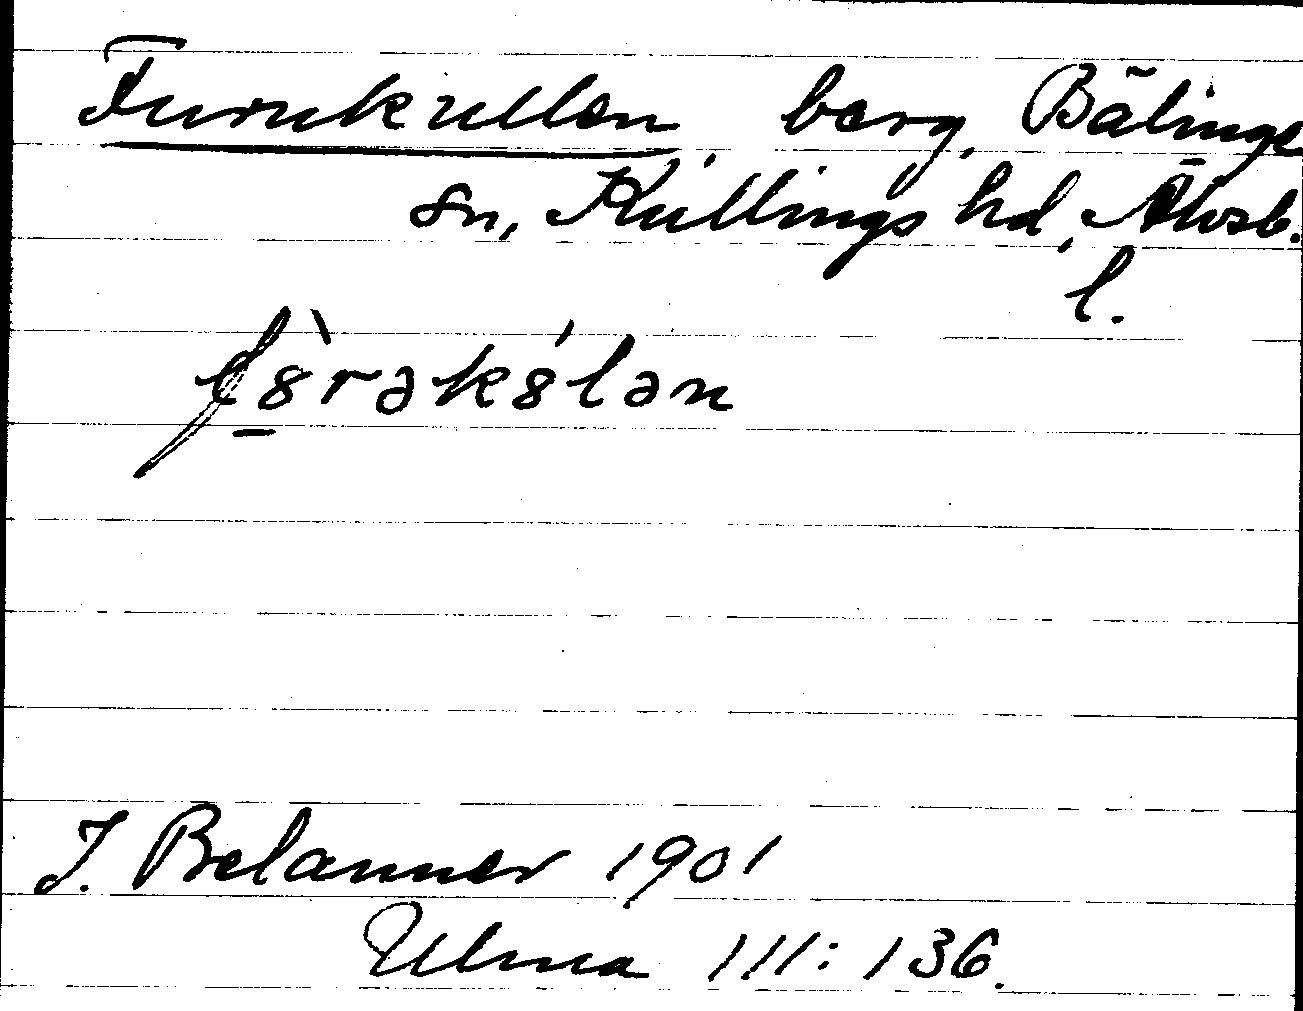 Furukullen, berg, Bälings
sn, Kullings hd, Älvsb.
l.
f8̱̀rək8́lən
J. Belanner 1901
Ulma 111: 136.